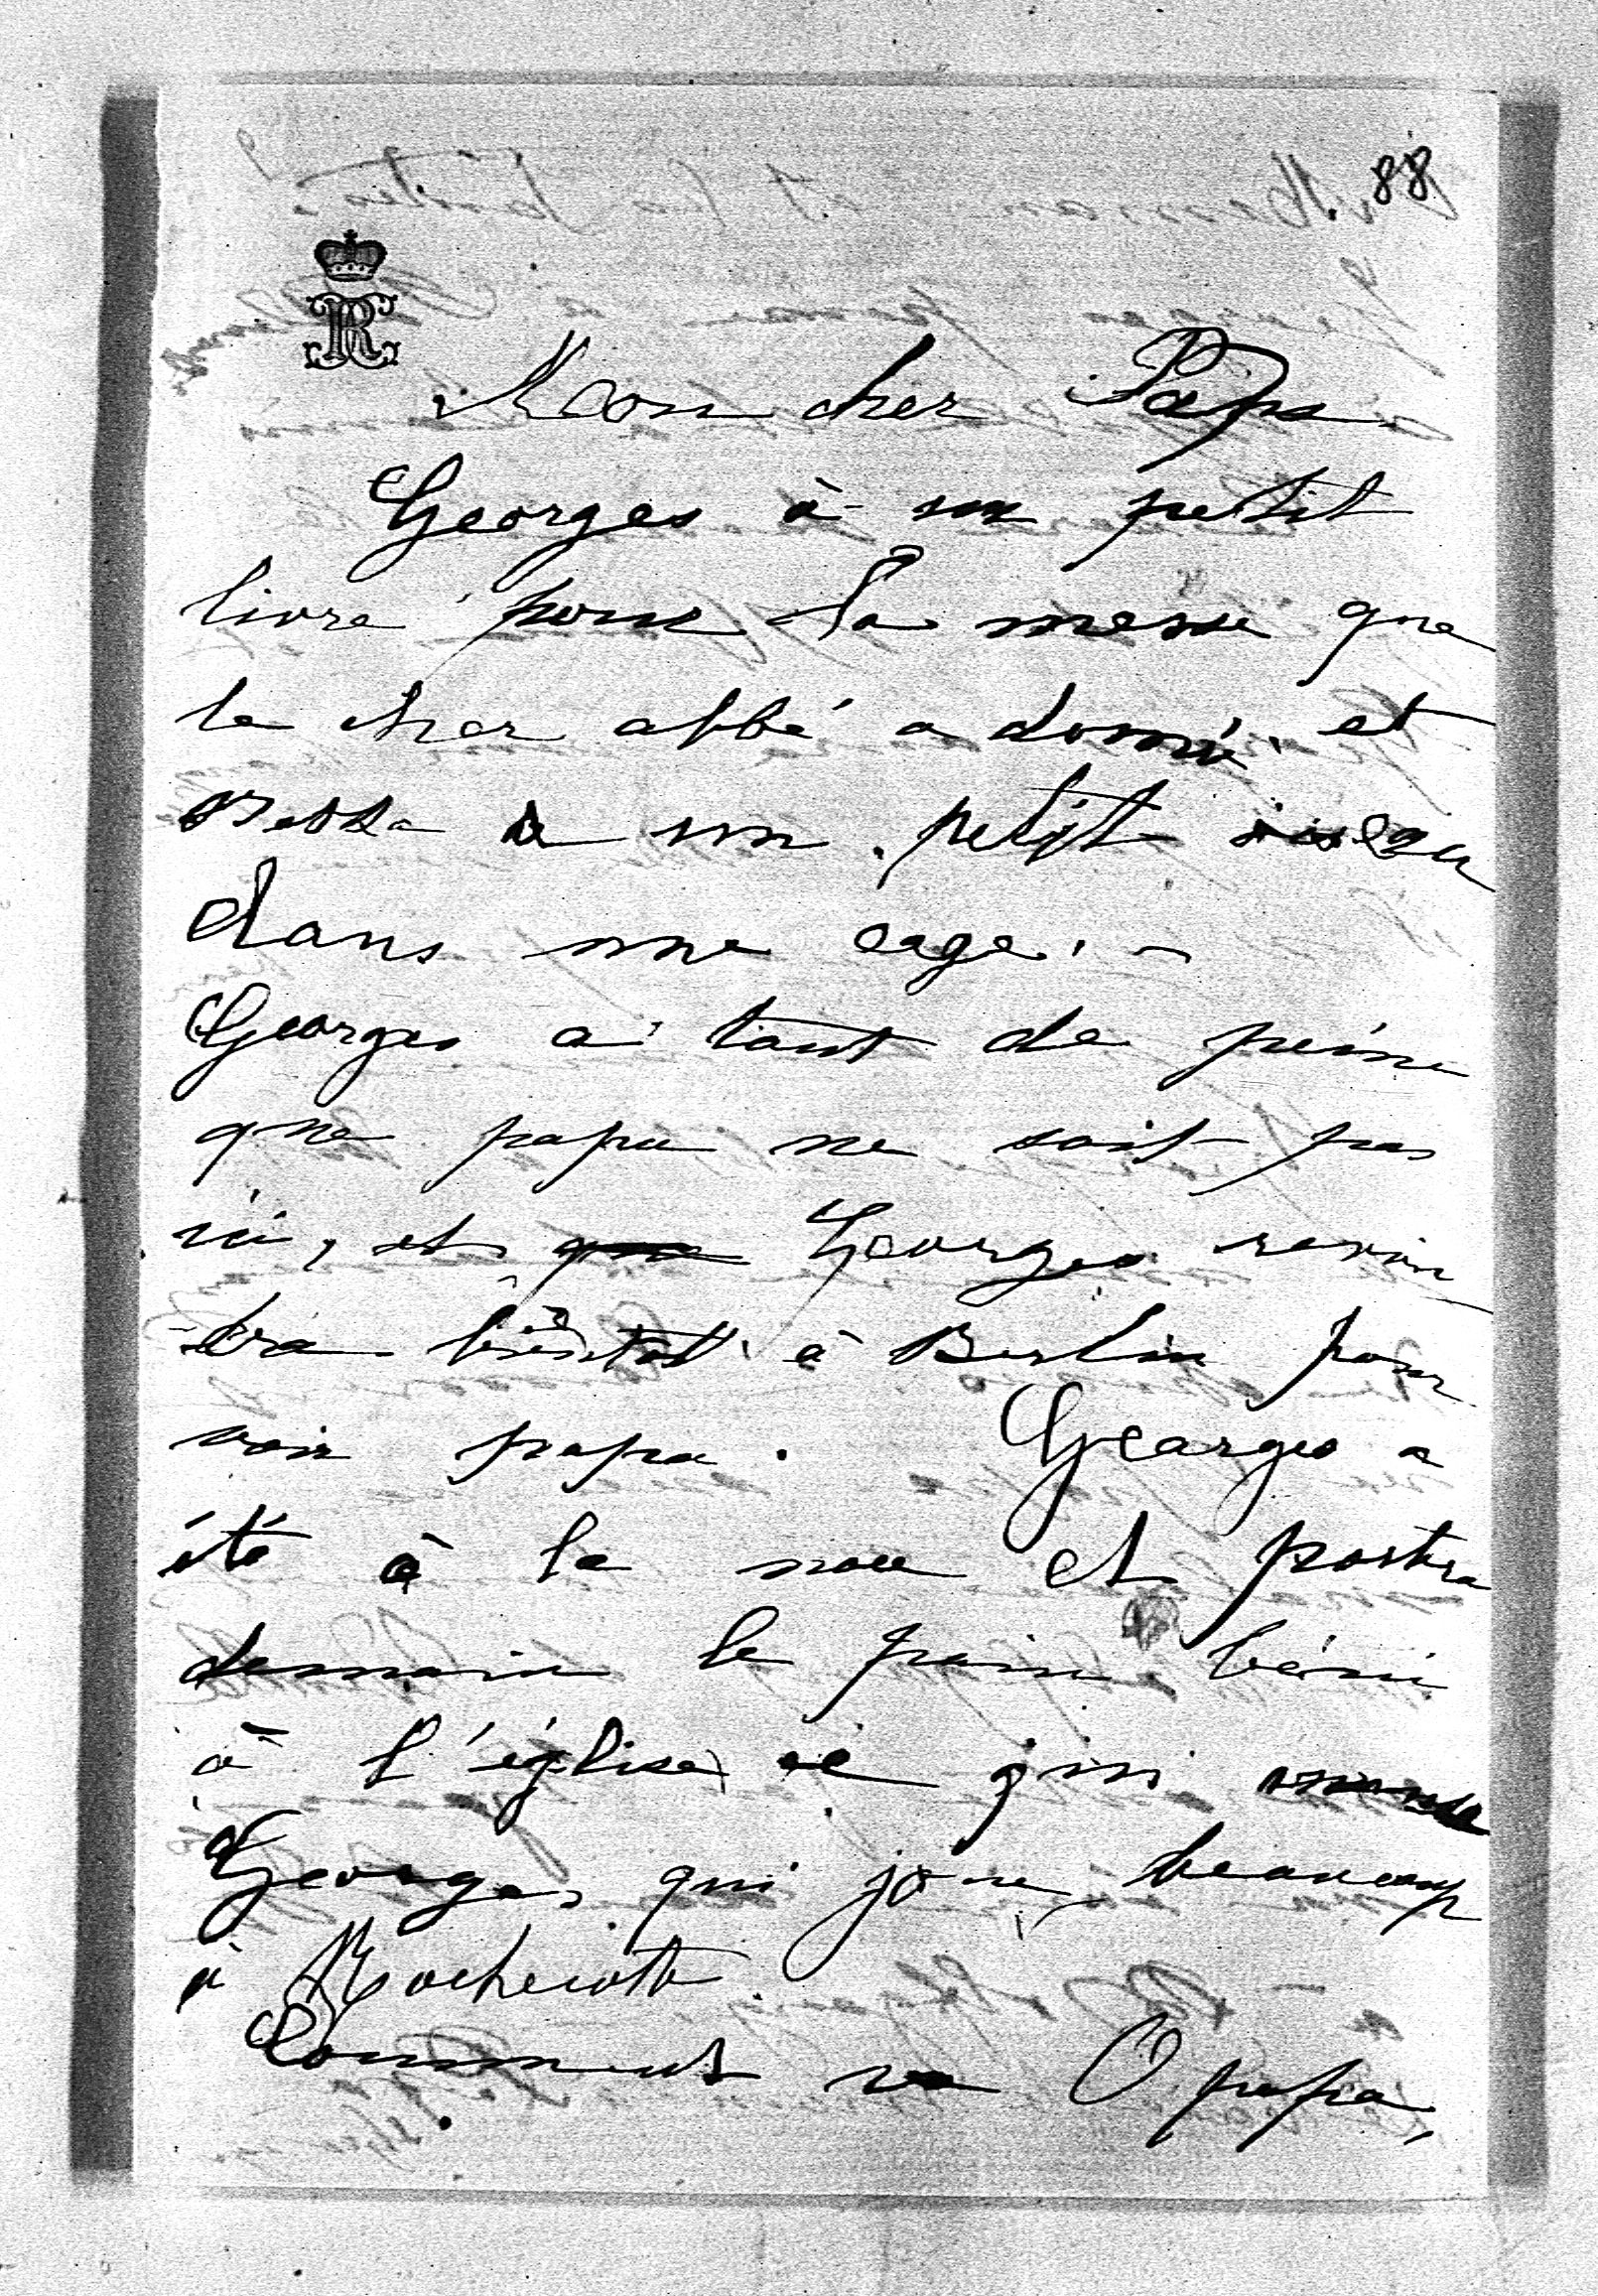 88
Mon cher Papa
Georges à un petit
livre pour la messe que
le cher abbé a donné et
a un petit oiseau
dans une cage. -
Georges a tant de peine
que papa ne soit pas
ici, et que Georges revien
-dra bientôt à Berlin pour
voir papa. Georges a
été à la noce et portera
demain le pain béni
à l'église ce qui amuse
Georges, qui joue beaucoup
à Rochecotte.
Comment va Opapa,